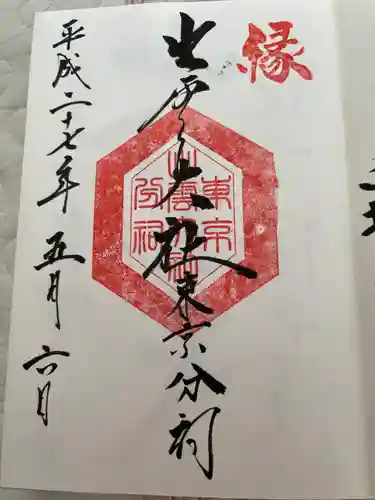 縁
出雲大社東京分祠
東京
出雲大社
分祠
平成二十七年五月六日